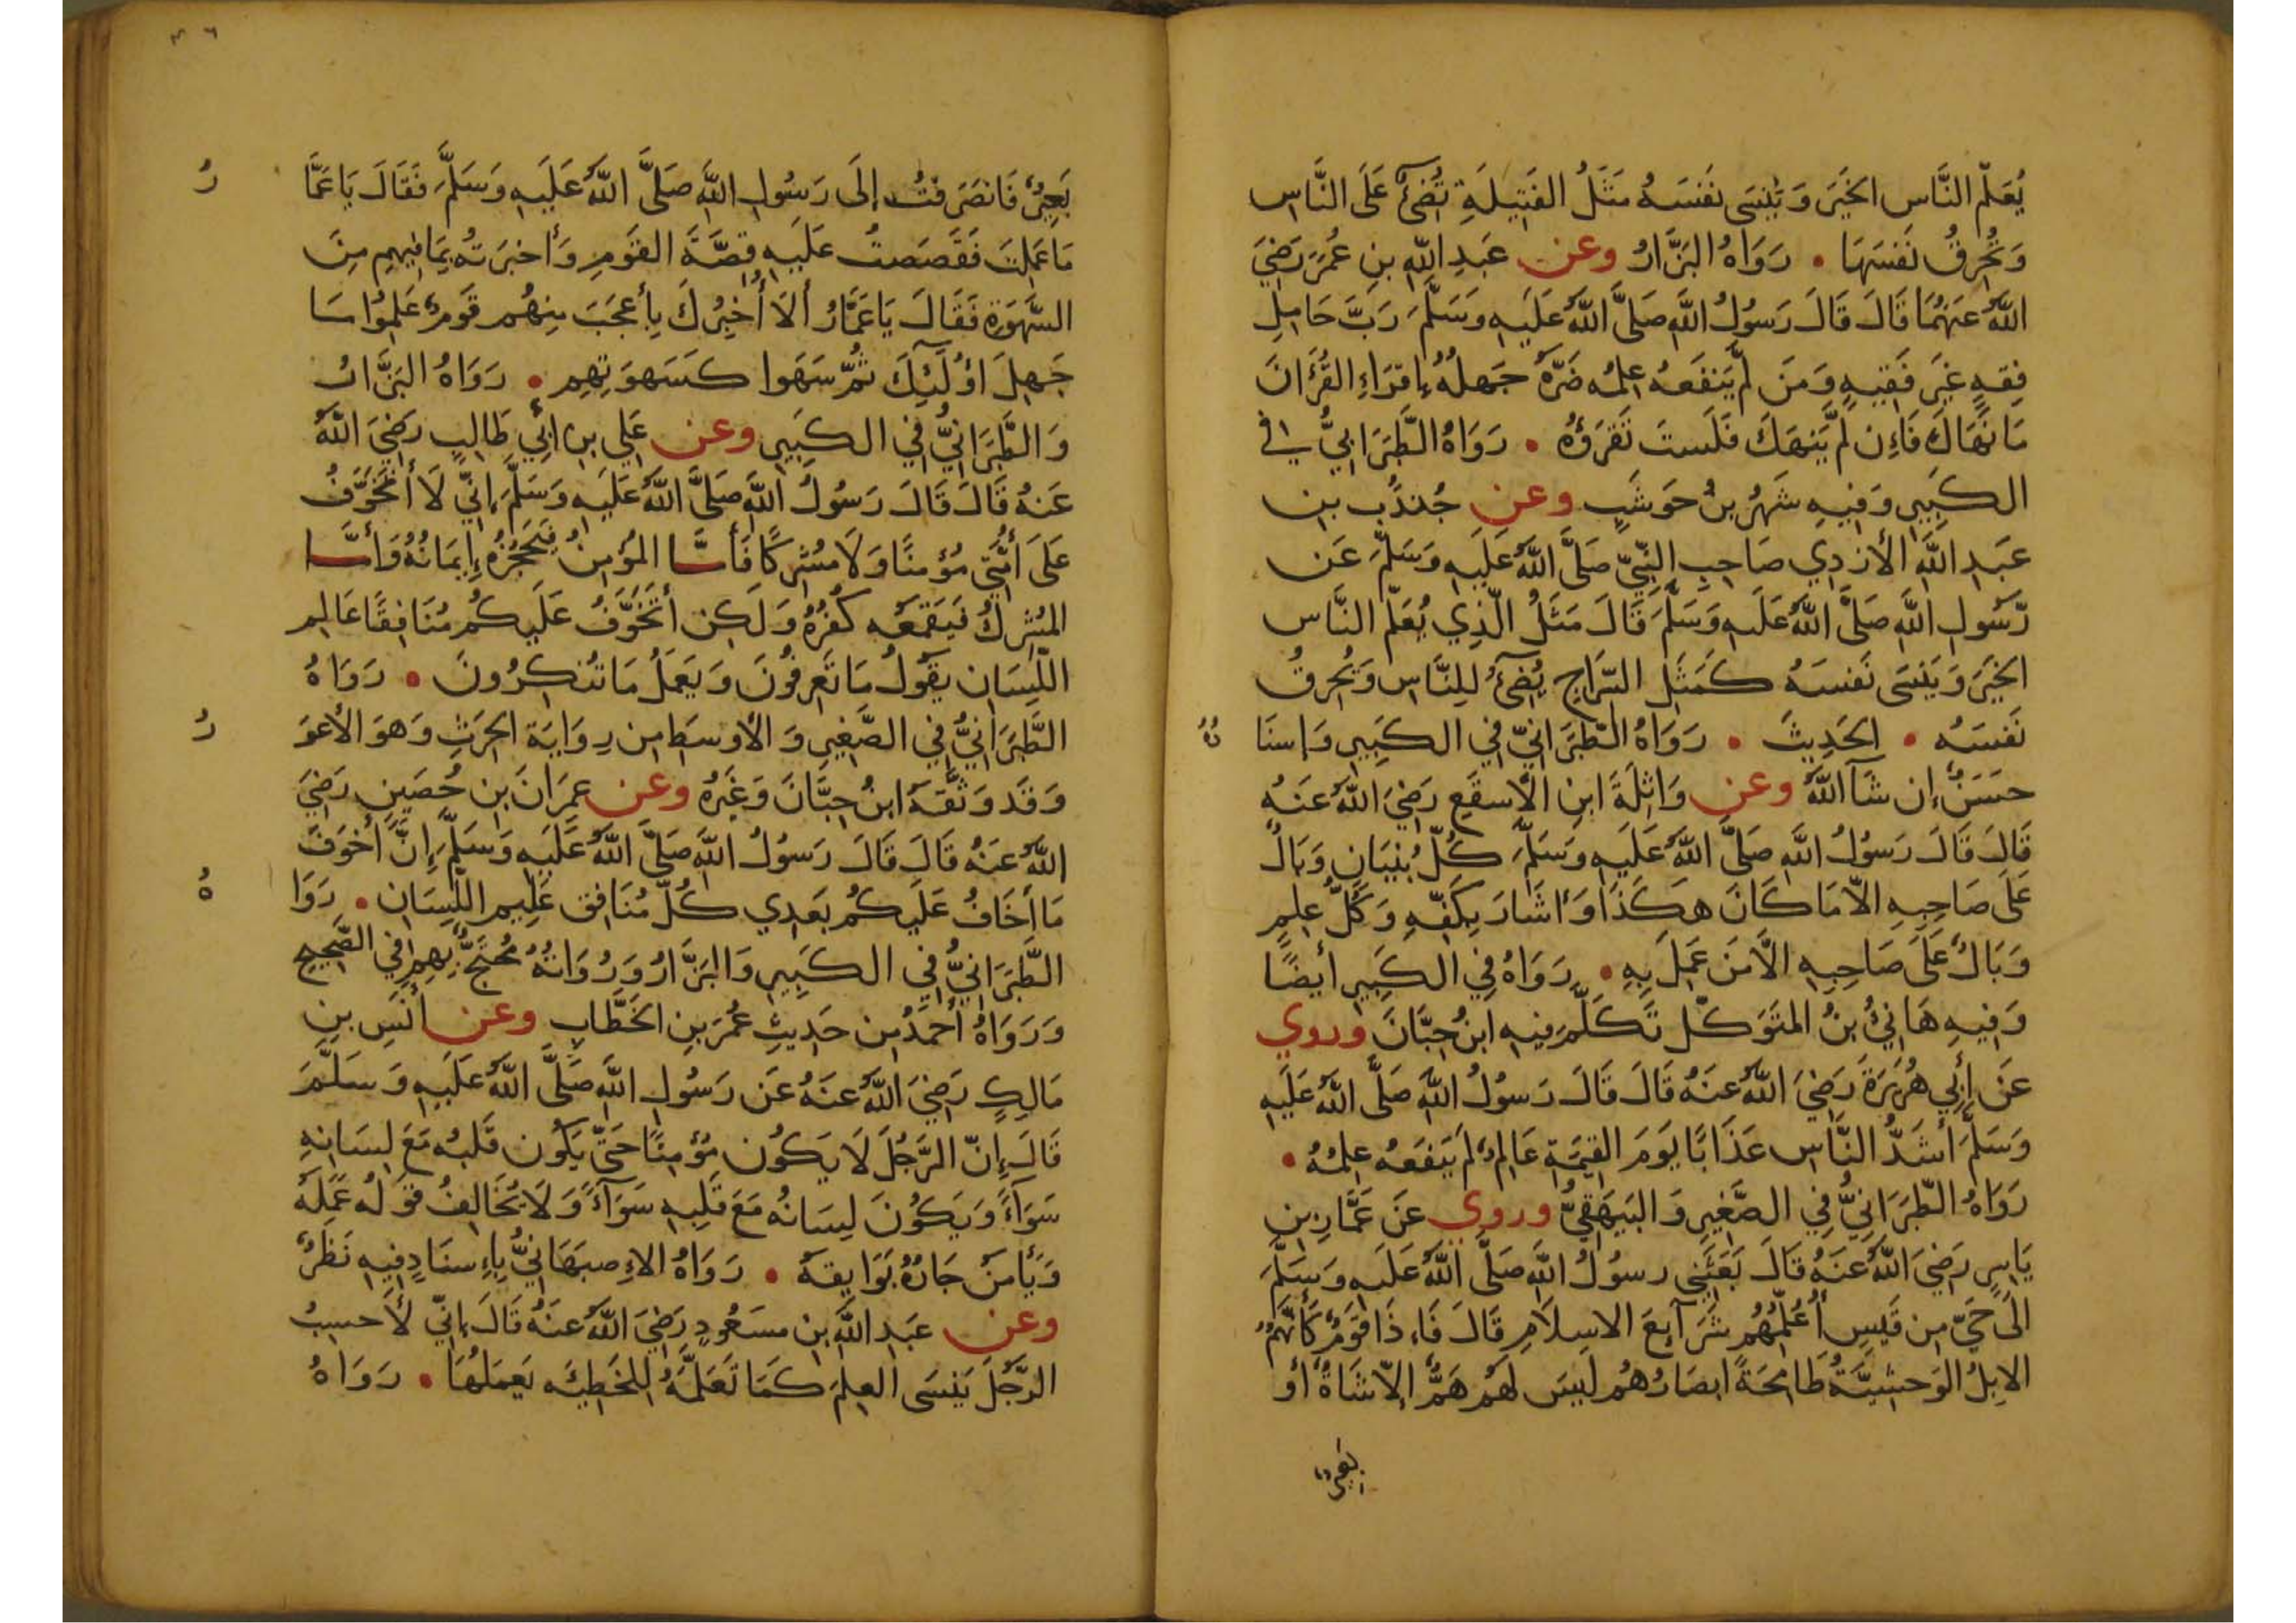 يُعَلِّمُ النَّاسَ الخَيْرَ وَيَنْسَى نَفْسَهُ مَثَلُ الفَتِيلَةِ تُضِيءُ عَلَى النَّاسِ
وَتُحْرِقُ نَفْسَهَا • رَوَاهُ البَزَّارُ وعن عَبْدِ اللَّهِ بنِ عُمَرَ رَضِيَ
اللَّهُ عَنْهُمَا قَالَ قَالَ رَسُولُ اللَّهِ صَلَّى اللَّهُ عَلَيْهِ وَسَلَّمَ رُبَّ حَامِلِ
فِقْهٍ غَيْرُ فَقِيهٍ وَمَنْ لَمْ يَنْفَعْهُ عِلْمُهُ ضَرَّهُ جَهْلُهُ اِقْرَاءِ القُرْآنَ
مَا نَهَاكَ فَإِنْ لَمْ يَنْهَكَ فَلَسْتَ تَقْرَؤُهُ • رَوَاهُ الطَّبَرَانِيُّ في
الكَبِيرِ وَفِيهِ شَهْرُ بنُ حَوْشَبٍ وعن جُنْدُبِ بنِ
عَبْدِ اللَّهِ الأَزْدِي صَاحِبِ النَّبِيِّ صَلَّى اللَّهُ عَلَيْهِ وَسَلَّمَ عَنْ
رَسُولِ اللَّهِ صَلَّى اللَّهُ عَلَيْهِ وَسَلَّمَ قَالَ مَثَلُ الَّذِي يُعَلِّمُ النَّاسَ
الخَيْرَ وَيَنْسَى نَفْسَهُ كَمَثَلِ السِّرَاجِ يُضِيءُ لِلنَّاسِ وَيُحْرِقُ
نَفْسَهُ • الحَدِيثَ • رَوَاهُ الطَّبَرَانِيُّ فِي الكَبِيرِ وَإِسْنَا دُهُ
حَسَنٌ إِنْ شَآ اللَّهُ وعن وَاثِلَةَ ابنِ الأَسْقَعِ رَضِيَ اللَّهُ عَنْهُ
قَالَ قَالَ رَسُولُ اللَّهِ صَلَّى اللَّهُ عَلَيْهِ وَسَلَّمَ كُلُّ بُنْيَانٍ وَبَالٌ
عَلَى صَاحِبِهِ الاَّ مَا كَانَ هَكَذَا وَأَشَارَ بِكَفِّهِ وَكُلُّ عِلْمٍ
وَبَالٌ عَلَى صَاحِبِهِ الاَّ مَنْ عَمِلَ بِهِ • رَوَاهُ فِي الكَبِيرِ أَيْضًا
وَفِيهِ هَانِئُ بنُ المُتَوَكِّلِ تَكَلَّمَ فِيهِ ابنُ حِبَّانَ وروي
عَنْ أَبِي هُرَيْرَةَ رَضِيَ اللَّهُ عَنْهُ قَالَ قَالَ رَسُولُ اللَّهِ صَلَّى اللَّهُ عَلَيْهِ
وَسَلَّمَ أَشَدُّ النَّاسِ عَذَابًا يَوْمَ القِيَمَةِ عَالِمٌ لَمْ يَنْفَعْهُ عِلْمُهُ •
رَوَاهُ الطَّبَرَانِيُّ فِي الصَّغِيرِ وَالبَيْهَقِيُّ وروي عَنْ عَمَّارِ بنِ
يَاسِرٍ رَضِيَ اللَّهُ عَنْهُ قَالَ بَعَثَنِي رسُولُ اللَّهِ صَلَّى اللَّهُ عَلَيْهِ وَسَلَّمَ
الَى حَيٍّ مِنْ قَيْسٍ أُعَلِّمُهُمْ شَرَآيِعَ الاسْلاَمِ قَالَ فَاءِذَا قَوْمٌ كَأَنَّهُمُ
الابِلُ الوَحْشِيَّةُ طَامِحَةً ابْصَارُهُمْ لَيْسَ لَهُمْ هَمٌّ إلاَّ شَاةٌ أَوْ
بَعِيرٌ
٣٦
بَعِيرٌ فَانْصَرَفْتُ إلَى رَسُولِ اللَّهِ صَلَّى اللَّهُ عَلَيْهِ وَسَلَّمَ فَقَالَ يَا عَمَّا رُ
مَا عَمِلْتَ فَقَصَصْتُ عَلَيْهِ قِصَّةَ القَوْمِ وَأَخْبَرْتُهُ بِمَا فِيهِمْ مِنَ
السَّهْوَةِ فَقَالَ يَا عَمَّارُ أَلاَ أُخْبِرُكَ بِأَعْجَبَ مِنْهُمْ قَوْمٌ عَلِمُوا مَا
جَهِلَ اوُلَئِكَ ثُمَّ سَهَوْا كَسَهْوَتِهِمْ • رَوَاهُ البَزَّارُ
وَالطَّبَرَانِيُّ فِي الكَبِيرِ وعن عَلِي بنِ ابِي طَالِبٍ رَضِيَ اللَّهُ
عَنْهُ قَالَ قَالَ رَسُولُ اللَّهِ صَلَّى اللَّهُ عَلَيْهِ وَسَلَّمَ إنِّي لاَ أَتَخَوَّفُ
عَلَى أُمَّتِي مُؤْمِنًا وَلاَ مُشْرِكًا فَأَمَّا المُؤْمِنُ فَيَحْجُزُهُ إِيمَانُهُ وَأَمَّا
المُشْرِكُ فَيَقْمَعُهُ كُفْرُهُ وَلَكِنْ أَتَخَوَّفُ عَلَيْكُمْ مُنَافِقًا عَالِمَ
اللِّسَانِ يَقُولُ مَا تَعْرِفُونَ وَيَعْمَلُ مَا تُنْكِرُونَ • رَوَاهُ
الطَّبَرَانِيُّ فِي الصَّغِيرِ وَالأَوْسَطِ مِنْ رِوَايَةِ الحَرِثِ وَهوَ الأَعْوَ رُ
وَقَدْ وَثَّقَهُ ابنُ حِبَّانَ وَغَيْرُهُ وعن عِمْرَانَ بنِ حُصَيْنٍ رَضِيَ
اللَّهُ عَنْهُ قَالَ قَالَ رَسُولُ اللَّهِ صَلَّى اللَّهُ عَلَيْهِ وَسَلَّمَ إِنَّ أَخْوَفَ
مَا أَخَافُ عَلَيْكُمْ بَعْدِي كُلُّ مُنَافِقٍ عَلِيمِ اللِّسَانِ • رَوَا هُ
الطَّبَرَانِيُّ فِي الكَبِيرِ وَالبَزَّارُ وَرُوَاتُهُ مُحْتَجٌّ بِهِمْ فِي الصَّحِيحِ
وَرَوَاهُ أَحْمَدُ مِنْ حَدِيثِ عُمَرَ بنِ الخَطَّابِ وعن أَنَسِ بنِ
مَالِكٍ رَضِيَ اللَّهُ عَنْهُ عَنْ رَسُولِ اللَّهِ صَلَّى اللَّهُ عَلَيْهِ وَسَلَّمَ
قَالَ إِنَّ الرَّجُلَ لاَ يَكُونُ مُؤْمِنًا حَتَّى يَكُونَ قَلْبُهُ مَعَ لِسَانِهِ
سَوَآءً وَيَكُونَ لِسَانُهُ مَعَ قَلْبِهِ سَوَآءً وَلاَ يُخَالِفُ قَوْلُهُ عَمَلَهُ
وَيَأْمَنُ جَارُهُ بَوَايِقَهُ • رَوَاهُ الاِصْبَهَانِيُّ بِاءِسْنَادٍ فِيهِ نَظَرٌ
وعن عَبْدِ اللَّهِ بنِ مَسْعُودٍ رَضِيَ اللَّهُ عَنْهُ قَالَ إنِّي لأَحْسِبُ
الرَّجُلَ يَنْسَى العِلْمَ كَمَا تَعَلَّمَهُ لِلْخَطِيَّهِ يَعْمَلُهَا • رَوَاهُ